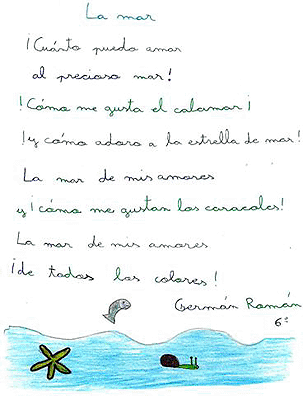 La mar
¡Cuánto puedo amar
al precioso mar!
!Cómo me gusta el calamar¡
!y cómo adoro a la estrella de mar!
La mar de mis amores
y ¡cómo me gustan los caracoles!
La mar de mis amores
¡de todos los colores!
Germán Román
6º